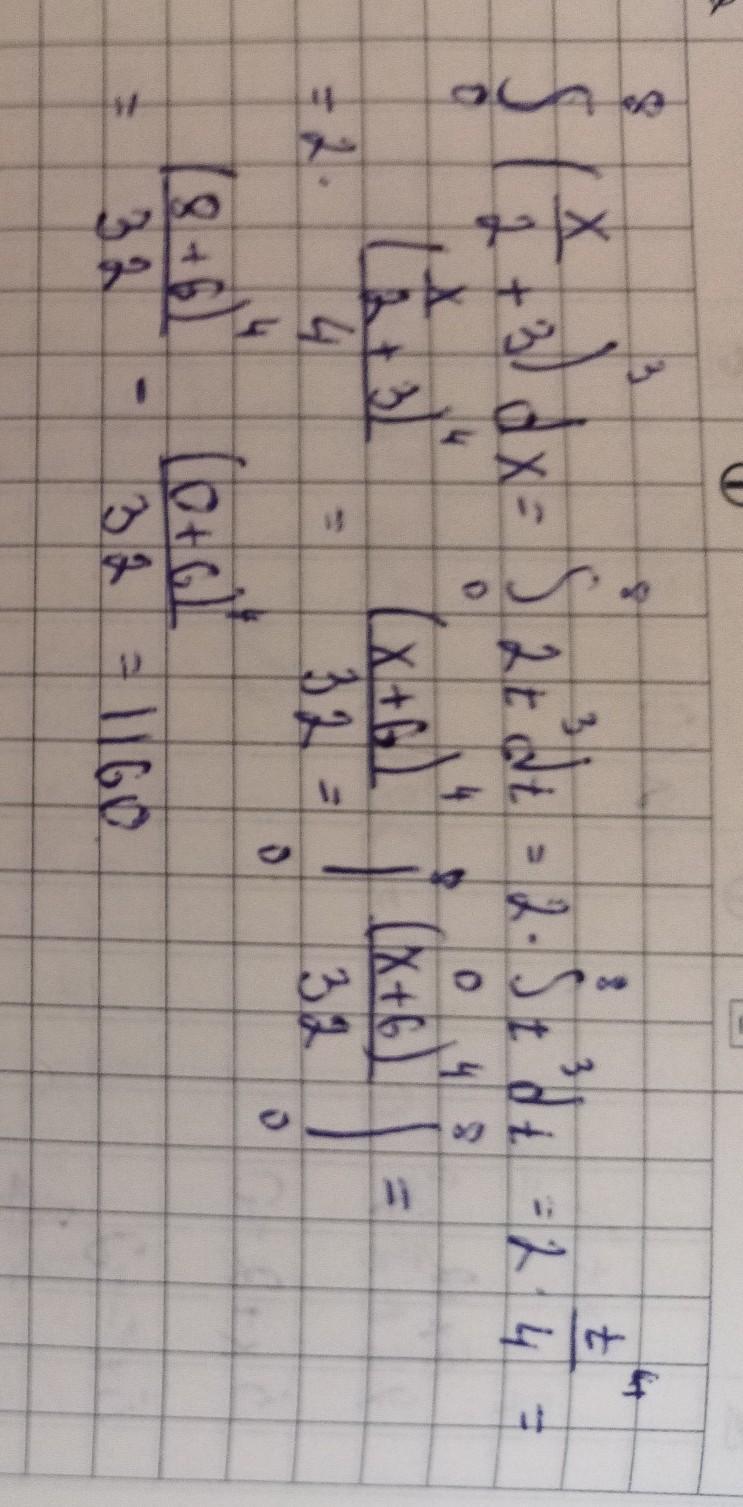 ∫₀⁸ (x/2 + 3)³ dx = ∫₀⁸ 2t³ dt = 2 · ∫₀⁸ t³ dt = 2 · t⁴/4 =
= 2 · (x/2 + 3)⁴/4 = (x+6)⁴/32 = |₀⁸ (x+6)⁴/32 |₀⁸ =
= (8+6)⁴/32 - (0+6)⁴/32 = 1160